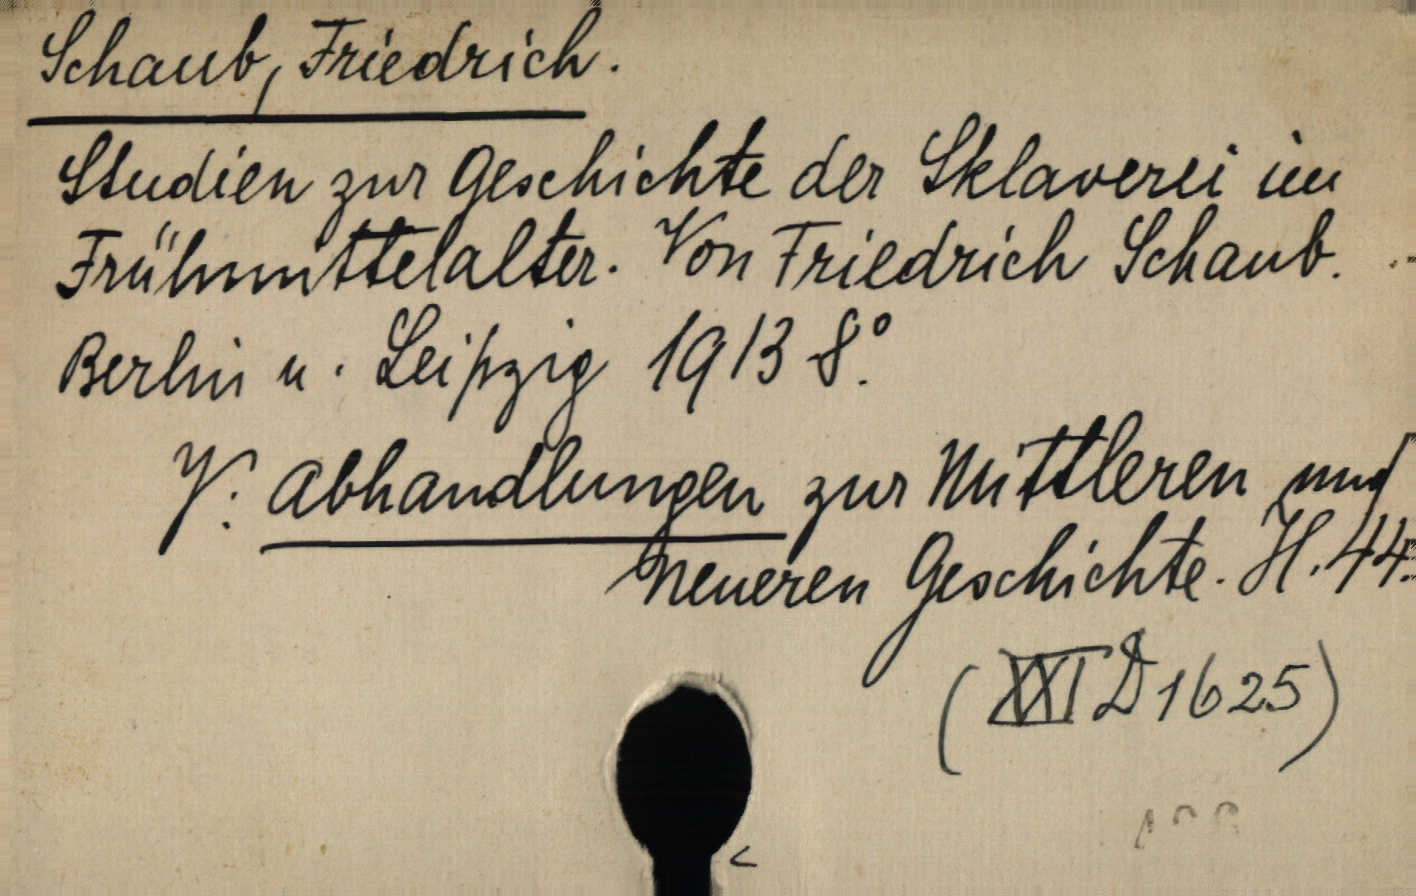 Schaub, Friedrich.
Studien zur Geschichte der Sklaverei im
Frühmittelalter. Von Friedrich Schaub.
Berlin u. Leipzig 1913 8°.
V. Abhandlungen zur Mittleren und
Neueren Geschichte. H. 44.
(XXI D 1625)